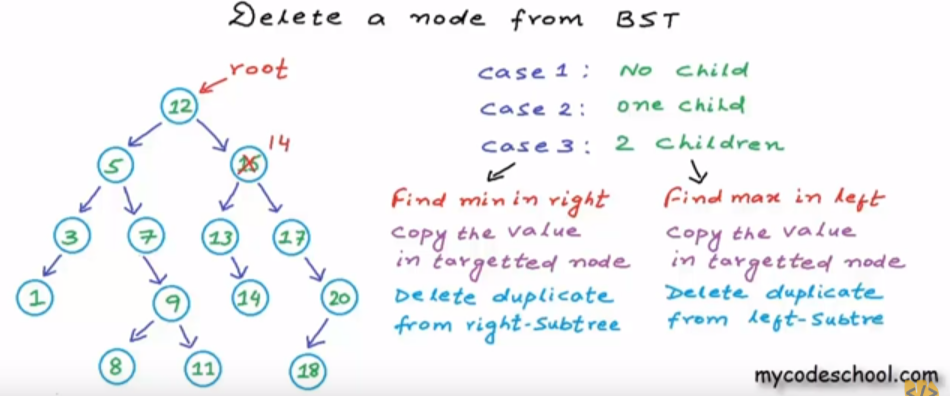 Delete a node from BST
root
12
14
5
15
3
7
13
17
1
9
14
20
8
11
18
case 1: No child
case 2: one child
case 3: 2 children
Find min in right
copy the value
in targetted node
Delete duplicate
from right-subtree
Find max in left
copy the value
in targetted node
Delete duplicate
from left-subtre
mycodeschool.com
</>